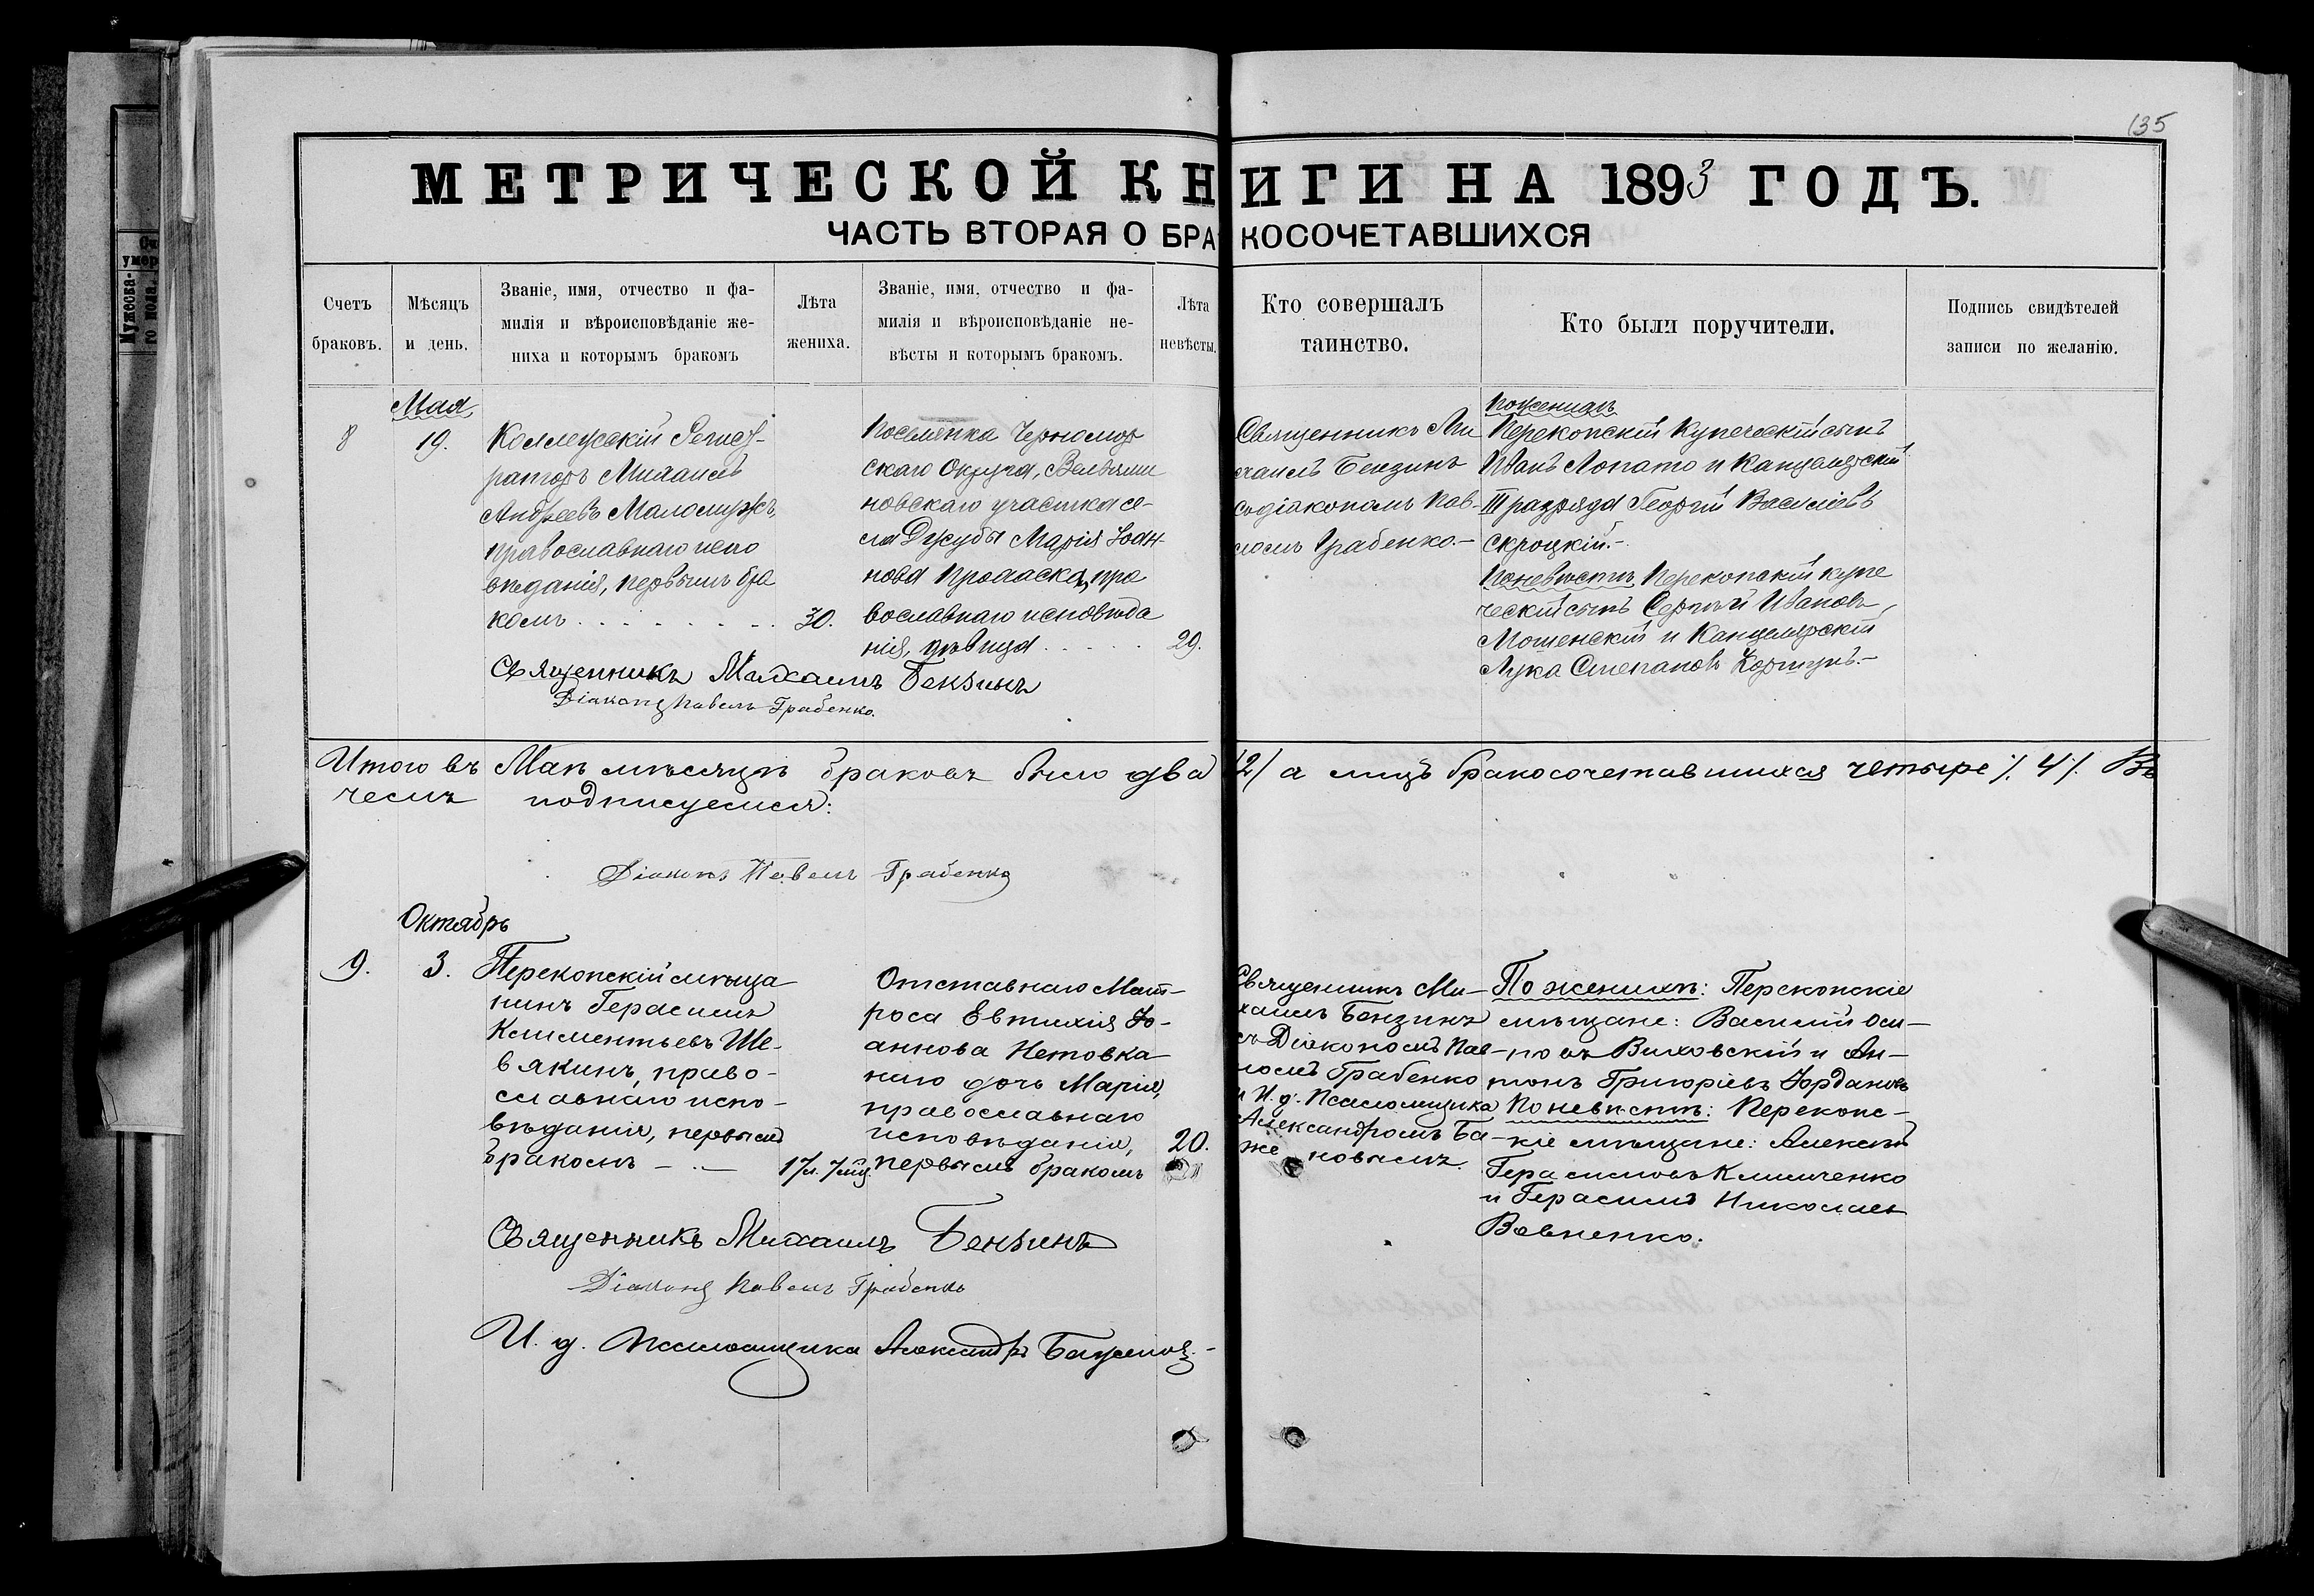 135
МЕТРИЧЕСКОЙ КНИГИ НА 1893 ГОДЪ.
ЧАСТЬ ВТОРАЯ О БРАКОСОЧЕТАВШИХСЯ
Счетъ
браковъ.
Мѣсяцъ
и день.
Званіе, имя, отчество и фа-
милія и вѣроисповѣданіе же-
ниха и которымъ бракомъ
Лѣта
жениха.
Званіе, имя, отчество и фа-
милія и вѣроисповѣданіе не-
вѣсты и которымъ бракомъ.
Лѣта
невѣсты.
Кто совершалъ
таинство.
Кто были поручители.
Подпись свидѣтелей
записи по желанію.
Мая
8
19.
Коллежскій Регист-
раторъ Михаилъ
Андреевъ
православнаго испо
вѣданія, первымъ бра
комъ
30.
Поселянка Черномор
скаго Округа, Вельями
новскаго участка се-
ла Дузубы Марія Іоан-
нова пра
вославнаго исповѣда
нія, дѣвица
29.
Священникъ Ми
хаилъ Бензинъ
со діакономъ Пав-
ломъ Грабенко.-
По женихѣ
Перекопскій Купеческій сынъ
Иванъ Лопато и Канцелярскій
III разряда Георгій Васильевъ
Скроцкій.-
По невѣстѣ Перекопскій купе
ческій сынъ Сергѣй Ивановъ
Мошенскій и Канцелярскій
Лука Степановъ Коршунъ.-
Священникъ Михаилъ Бензинъ
Діаконъ Павелъ Грабенко.
Итого въ Маѣ мѣсяцѣ браковъ было два /2/ а лицъ бракосочетавшихся четыре /.4/. Въ
чемъ подписуемся:
Діаконъ Павелъ Грабенко
Октябрь
9.
3.
Перекопскій мѣща
нинъ Герасимъ
Климентьевъ Ше-
вякинъ, право-
славнаго испо-
вѣданія, первымъ
бракомъ
17л. 7мц.
Отставнаго Мат-
роса Евтихія Іо-
аннова Нетовка-
наго дочь Марія,
православнаго
исповѣданія,
первымъ бракомъ
20.
Священникъ Ми-
хаилъ Бензинъ
съ Діакономъ Пав-
ломъ Грабенко
и И. д. Псаломщика
Александромъ Ба-
женовымъ.
По женихѣ: Перекопскіе
мѣщане: Василій Оси-
повъ Виховскій и Ан-
тонъ Григоріевъ Іордановъ
По невѣстѣ: Перекопс-
кіе мѣщане: Алексѣй
Герасимовъ Климченко
и Герасимъ Николаев
Вовненко.
Священникъ Михаилъ Бензинъ
Діаконъ Павелъ Грабенко
И. д. Псаломщика Александръ Баженовъ.-